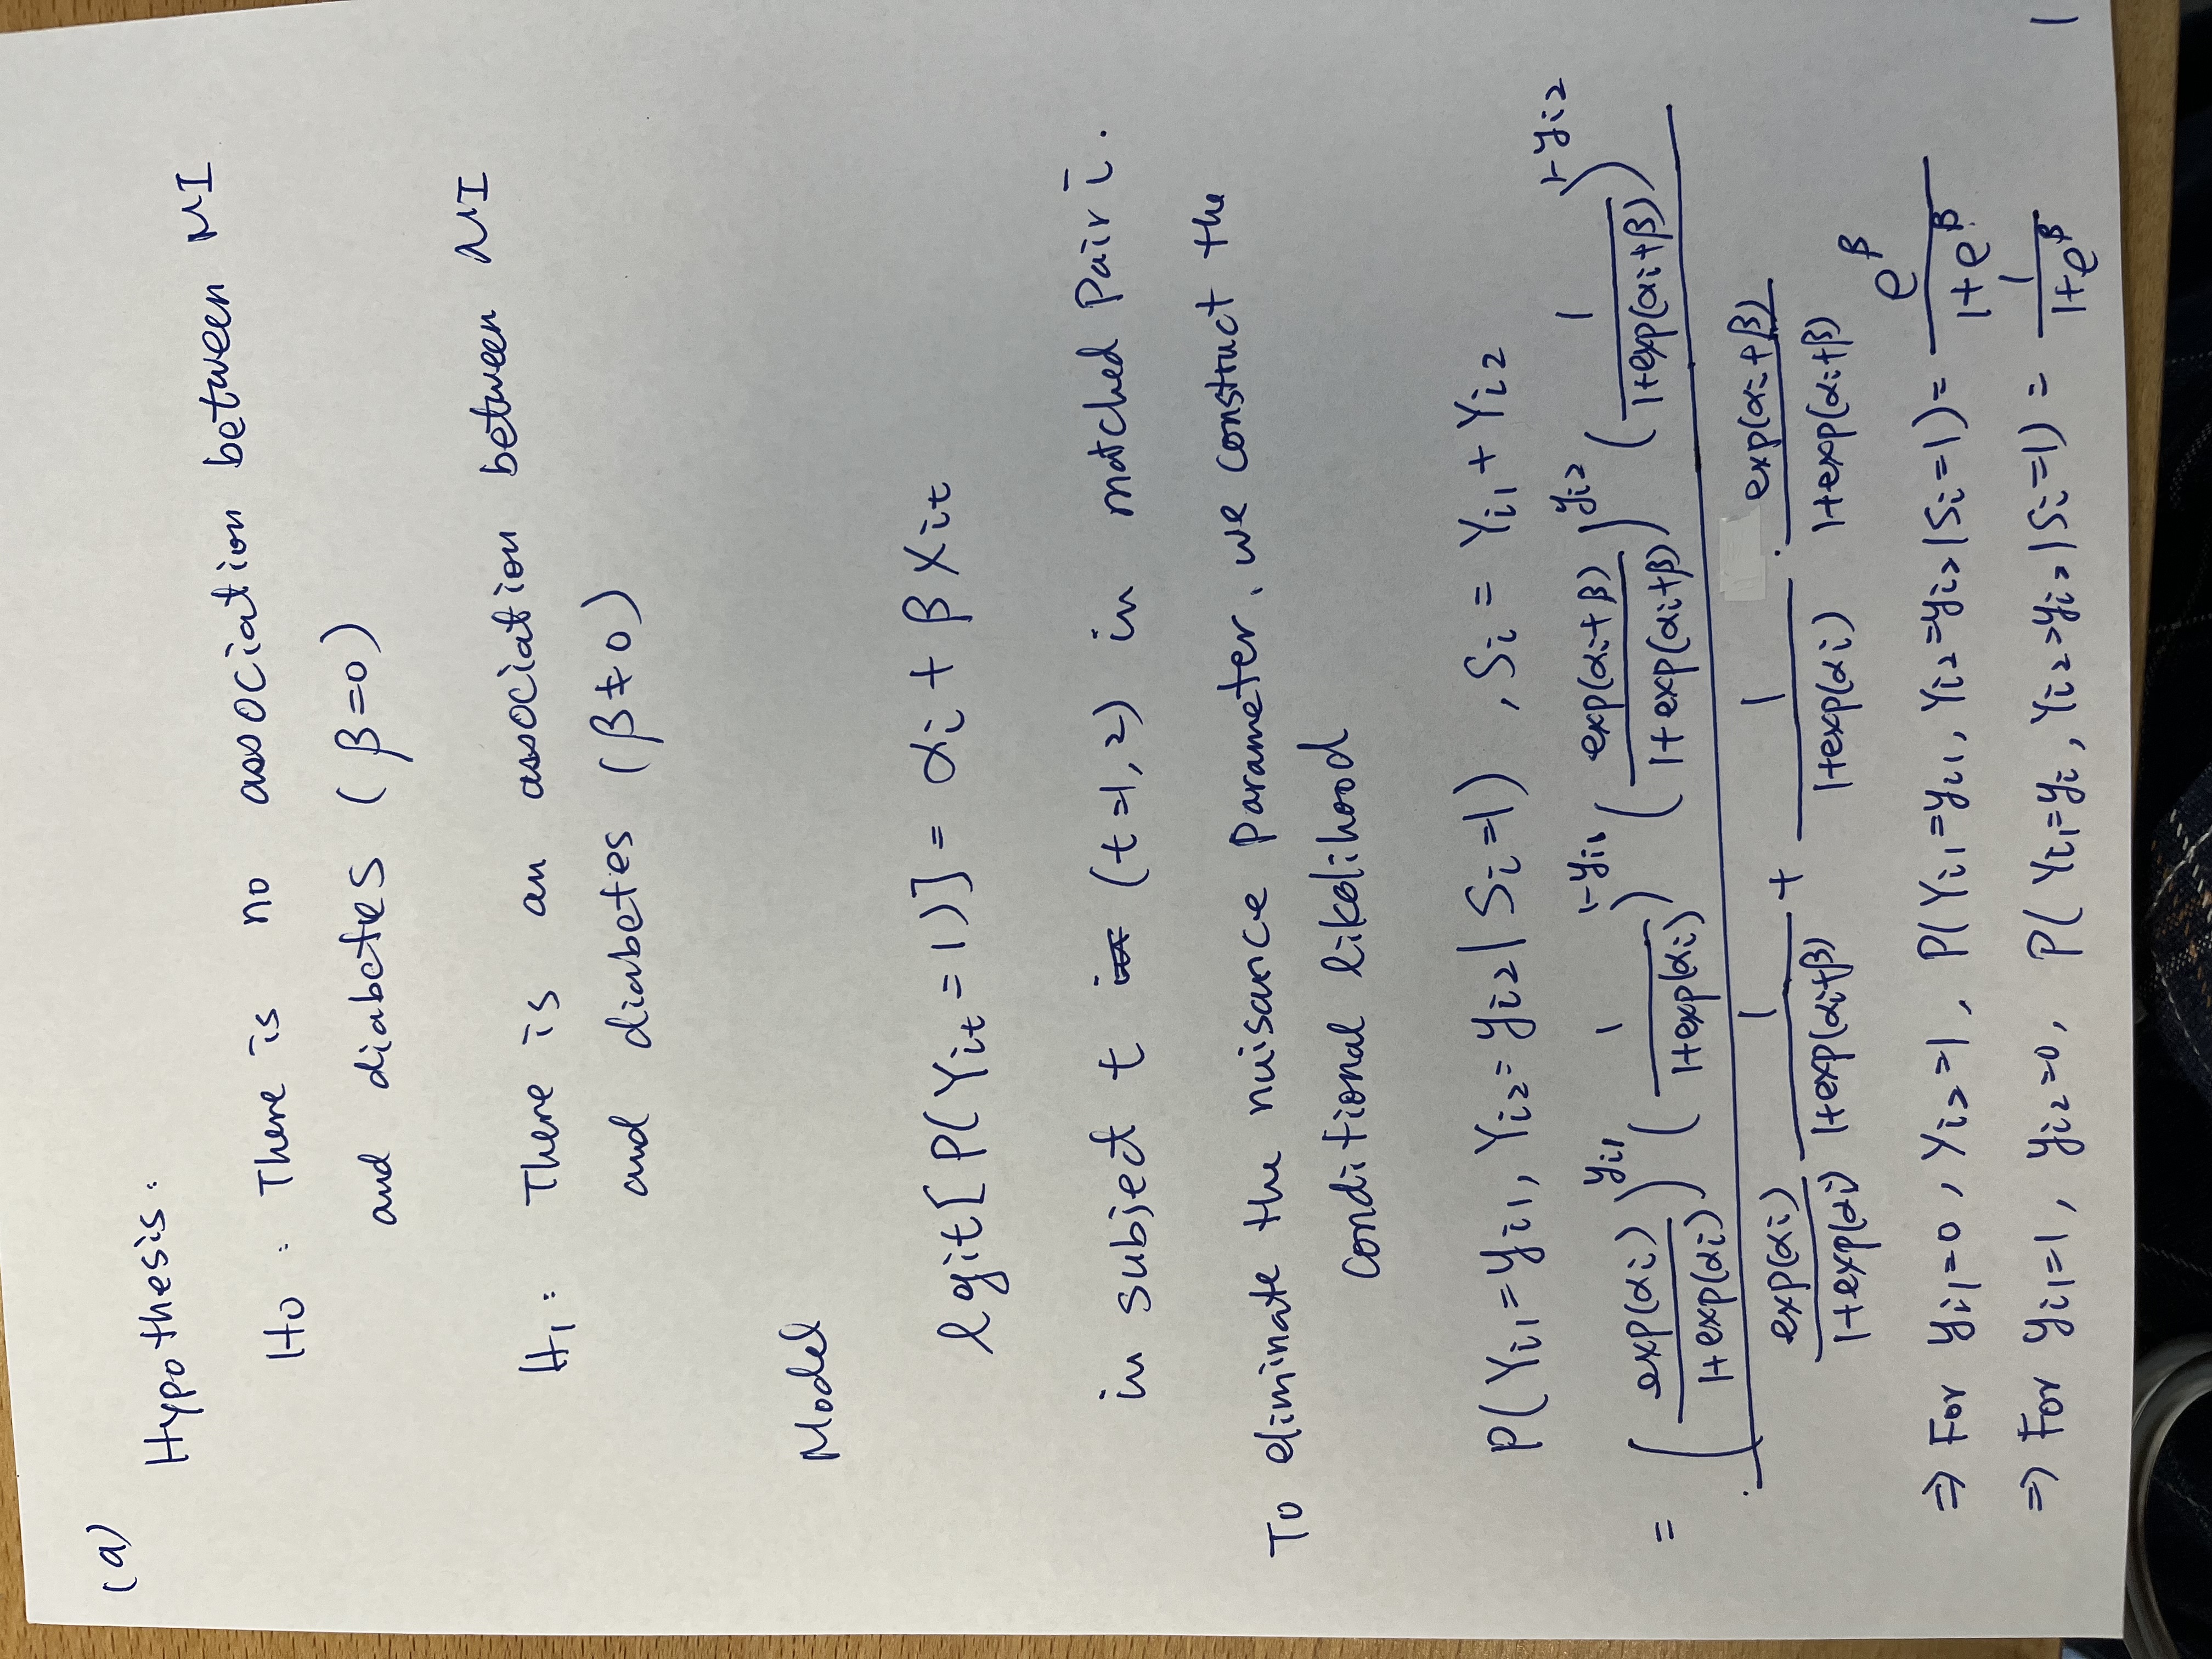 (a)
Hypothesis:
H0: There is no association between MI
and diabetes (β=0)
H1: There is an association between MI
and diabetes (β≠0)
Model
logit[P(Yit=1)] = αi + βXit
in subject t (t=1,2) in matched pair i.
To eliminate the nuisance parameter, we construct the
conditional likelihood
P(Yi1=yi1, Yi2=yi2|Si=1), Si = Yi1 + Yi2
= (exp(αi)/1+exp(αi))^yi1 (1/1+exp(αi))^1-yi1 (exp(αi+β)/1+exp(αi+β))^yi2 (1/1+exp(αi+β))^1-yi2
exp(αi)/1+exp(αi) · 1/1+exp(αi+β) + 1/1+exp(αi) · exp(αi+β)/1+exp(αi+β)
⇒ For yi1=0, yi2=1, P(Yi1=yi1, Yi2=yi2|Si=1) = e^β/1+e^β
⇒ For yi1=1, yi2=0, P(Yi1=yi, Yi2=yi2|Si=1) = 1/1+e^β
1